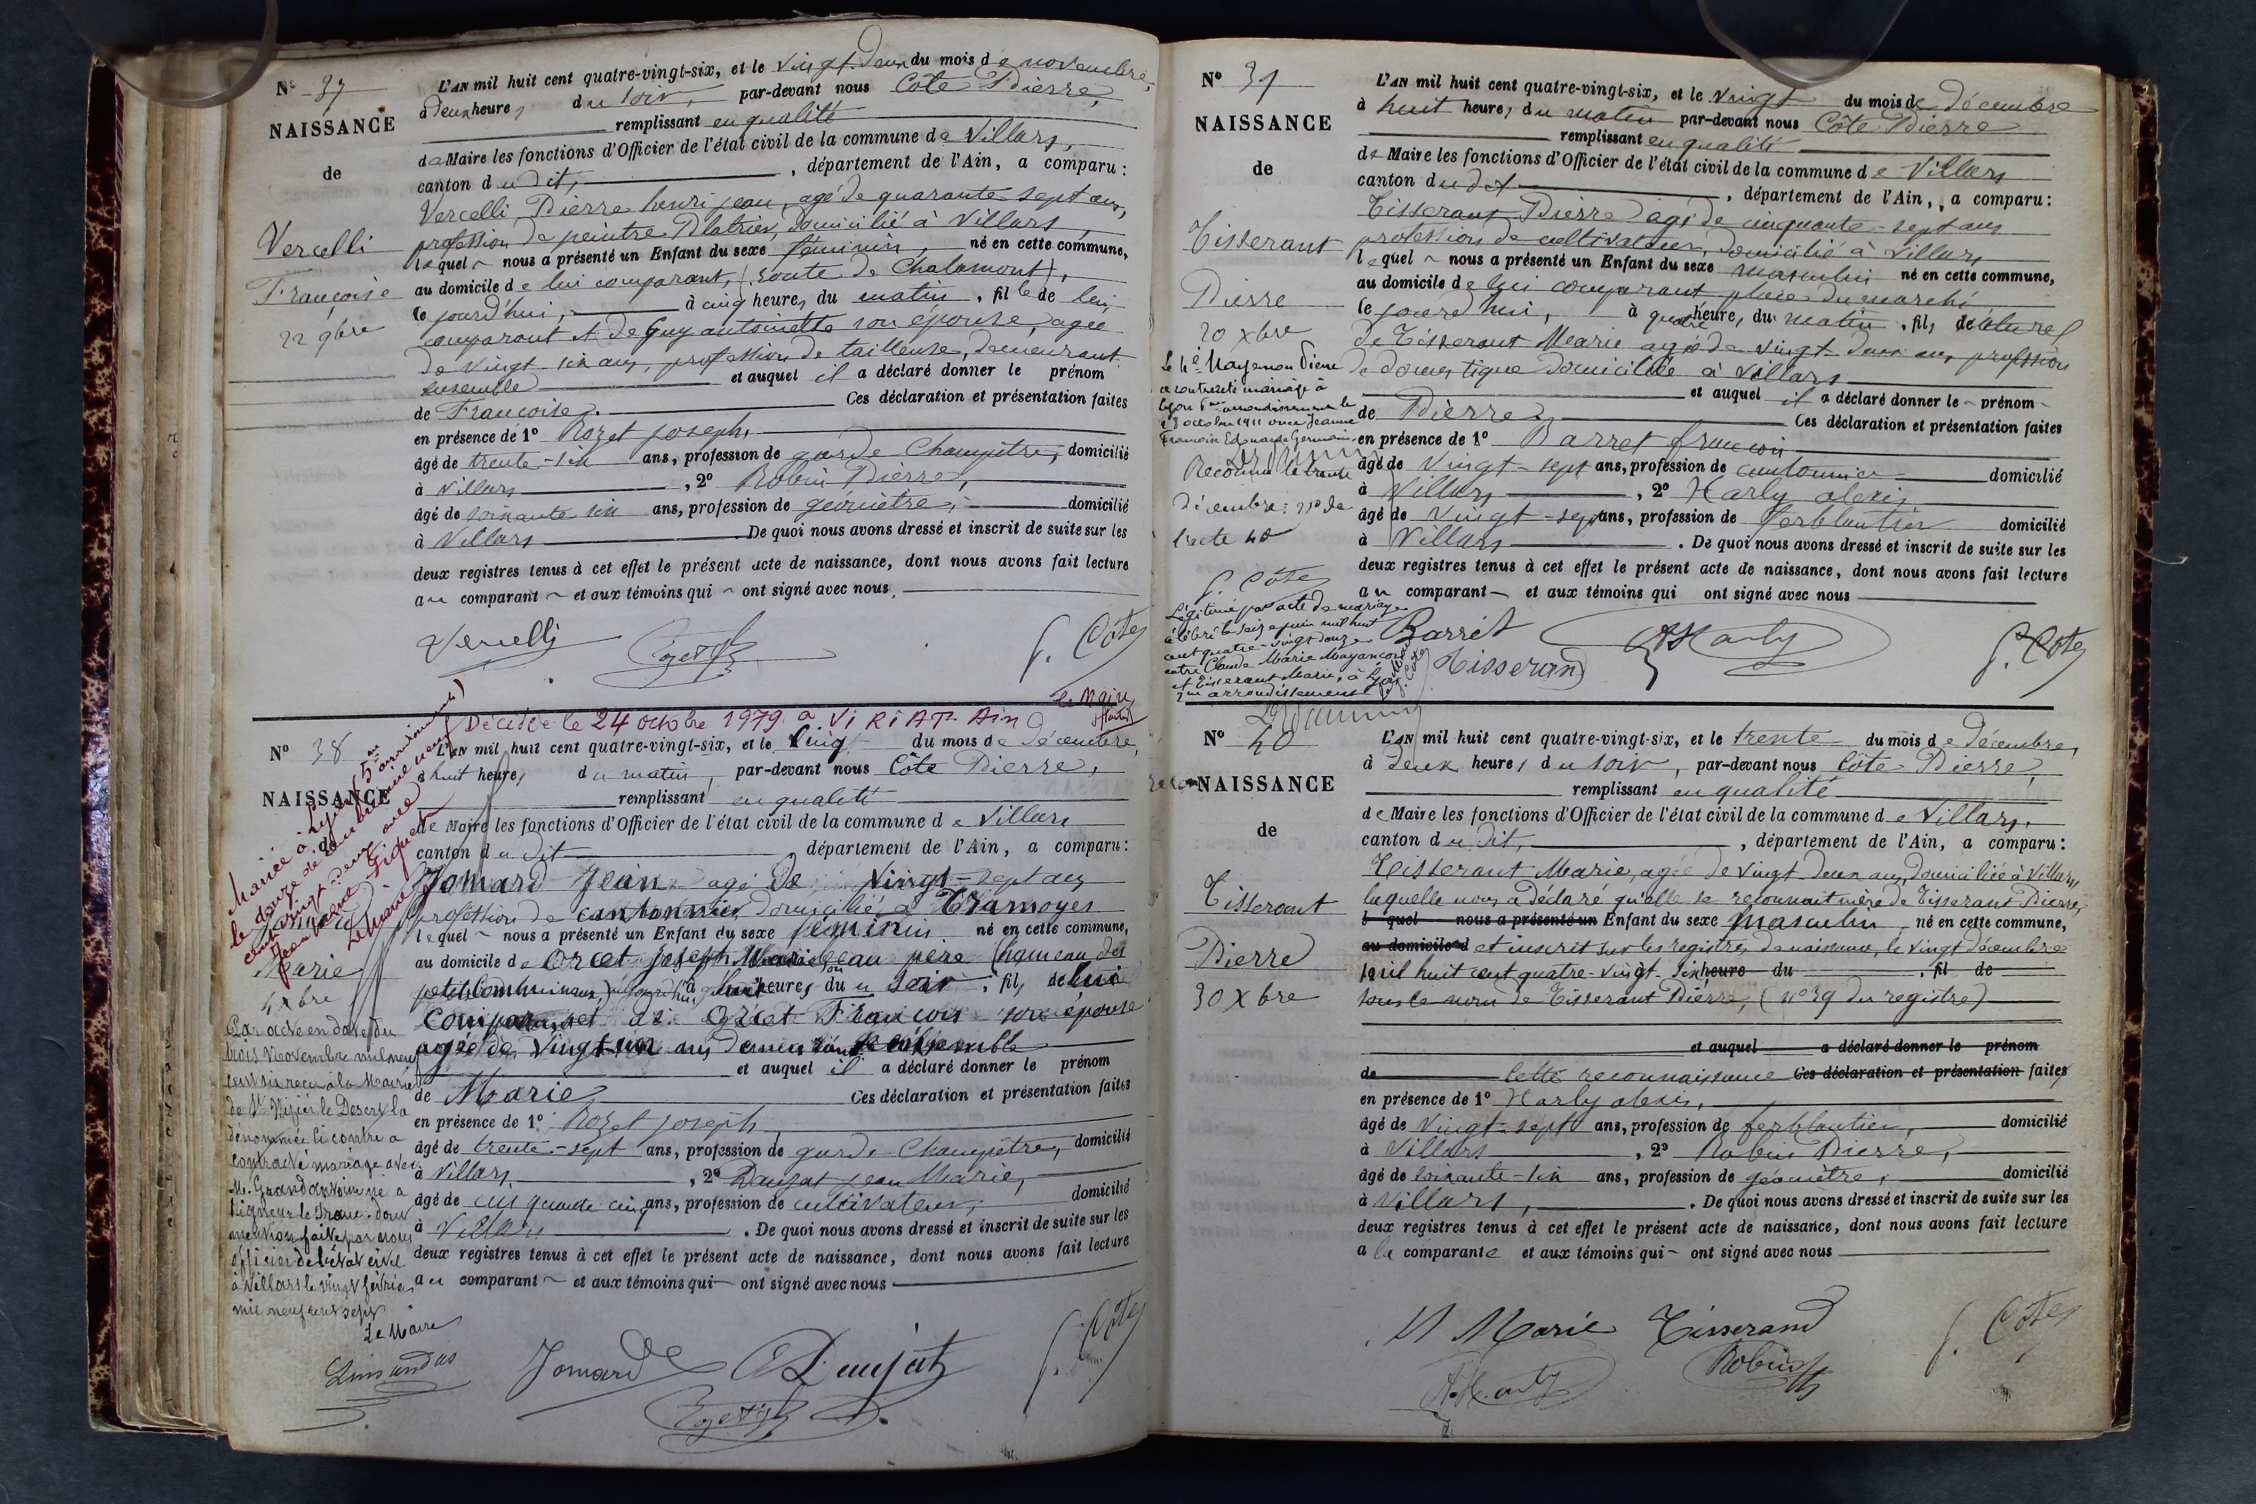 N° 37
NAISSANCE
de
Vercelli
Françoise
22 9bre
L'AN mil huit cent quatre-vingt-six, et le vingt-deux du mois de novembre,
à deux heures du soir, par-devant nous Côte Pierre,
remplissant en qualité
de Maire les fonctions d'Officier de l'état civil de la commune de Villars,
canton du dit, département de l'Ain, a comparu :
Vercelli Pierre henri jean, agé de quarante sept ans,
profession de peintre Platrier, domicilié à Villars
lequel nous a présenté un Enfant du sexe féminin, né en cette commune,
au domicile de lui comparant, (route de Chalamont),
le jourd'hui, à cinq heures du matin, fille de lui
comparant et de Guy antoinette son épouse, agée
de vingt-six ans, profession de tailleuse, demeurant
ensemble et auquel il a déclaré donner le prénom
de Françoise. Ces déclaration et présentation faites
en présence de 1° Rozet joseph,
âgé de trente-six ans, profession de garde Champêtre, domicilié
à Villars, 2° Robin Pierre,
âgé de soixante six ans, profession de géomètre, domicilié
à Villars. De quoi nous avons dressé et inscrit de suite sur les
deux registres tenus à cet effet le présent acte de naissance, dont nous avons fait lecture
au comparant et aux témoins qui ont signé avec nous.
Vercelli
P. Côte
Décédée le 24 octobre 1979 à VIRIAT Ain
Le Maire
N° 38
NAISSANCE
de
Jomard
Marie
Mariée à Lyon (5me arrondissement)
le douze décembre mil neuf
cent vingt-deux avec
Jean Piquet
Le Maire
Par acte en date du
trois Novembre mil neuf
cent six reçu à la Mairie
de St Nizier le Desert la
dénommée ci contre a
contracté mariage avec
M. Grand antoine né à
mention faite par nous
officier de l'état civil
à Villars le vingt février
mil neuf cent sept
Le Maire
L'AN mil huit cent quatre-vingt-six, et le vingt du mois de décembre,
à huit heures du matin, par-devant nous Côte Pierre,
remplissant en qualité
de Maire les fonctions d'Officier de l'état civil de la commune de Villars
canton du dit département de l'Ain, a comparu :
Jomard Jean agé de vingt-sept ans
profession de cantonnier, domicilié à Tramoyes
lequel nous a présenté un Enfant du sexe féminin né en cette commune,
au domicile de Orcet Joseph Marie père (hameau des
petits Communaux) à huit heures du soir, fille de lui
comparant et de Orcet son épouse
agée de vingt-un ans demeurant ensemble
et auquel il a déclaré donner le prénom
de Marie Ces déclaration et présentation faites
en présence de 1° Rozet joseph
âgé de trente-sept ans, profession de garde Champêtre, domicilié
à Villars, 2° Daujat jean Marie,
âgé de cinquante cinq ans, profession de cultivateur, domicilié
à Villars. De quoi nous avons dressé et inscrit de suite sur les
deux registres tenus à cet effet le présent acte de naissance, dont nous avons fait lecture
au comparant et aux témoins qui ont signé avec nous
Jomard Daujat P. Côte
N° 39
NAISSANCE
de
Tisserant
Pierre
20 Xbre
Le né Mayençon Pierre
a contracté mariage à
Lyon arrondissement le
octobre 1911 avec Jeanne
Germain
Reconnu le trente
décembre : no de
l'acte 40
P. Côte
Légitimé par acte de mariage
célébré le seize juin mil huit
cent quatre-vingt-douze
entre Claude Marie Mayençon
et Tisserant Marie, à Lyon
arrondissement
L'AN mil huit cent quatre-vingt-six, et le vingt du mois de décembre
à huit heures du matin par-devant nous Côte Pierre
remplissant en qualité
de Maire les fonctions d'Officier de l'état civil de la commune de Villars
canton du dit, département de l'Ain, a comparu :
Tisserant Pierre agé de cinquante-sept ans
profession de cultivateur, domicilié à Villars
lequel nous a présenté un Enfant du sexe masculin né en cette commune,
au domicile de lui comparant place du marché
le jourd'hui, à quatre heures du matin, fils naturel
de Tisserant Marie agée de vingt-deux ans, profession
de domestique domiciliée à Villars
et auquel il a déclaré donner le prénom
de Pierre Ces déclaration et présentation faites
en présence de 1° Barret françois
âgé de vingt-sept ans, profession de cantonnier domicilié
à Villars, 2° Harly alexis
âgé de vingt-sept ans, profession de ferblantier domicilié
à Villars. De quoi nous avons dressé et inscrit de suite sur les
deux registres tenus à cet effet le présent acte de naissance, dont nous avons fait lecture
au comparant et aux témoins qui ont signé avec nous
Barret A Harly P. Côte
Tisserand
N° 40
NAISSANCE
de
Tisserant
Pierre
30 Xbre
L'AN mil huit cent quatre-vingt-six, et le trente du mois de décembre,
à deux heures du soir, par-devant nous Côte Pierre,
remplissant en qualité
de Maire les fonctions d'Officier de l'état civil de la commune de Villars,
canton du dit, département de l'Ain, a comparu :
Tisserant Marie, agée de vingt-deux ans, domiciliée à Villars
laquelle nous a déclaré qu'elle se reconnait mère de Tisserant Pierre,
lequel nous a présenté un Enfant du sexe masculin, né en cette commune,
au domicile d et inscrit sur les registres de naissance, le vingt décembre
mil huit cent quatre-vingt-six heure du, fil de
sous le nom de Tisserant Pierre, (n° 39 du registre)
et auquel a déclaré donner le prénom
de Cette reconnaissance Ces déclaration et présentation faites
en présence de 1° Harly alexis,
âgé de vingt-sept ans, profession de ferblantier, domicilié
à Villars, 2° Robin Pierre,
âgé de soixante-six ans, profession de géomètre, domicilié
à Villars, . De quoi nous avons dressé et inscrit de suite sur les
deux registres tenus à cet effet le présent acte de naissance, dont nous avons fait lecture
a la comparante et aux témoins qui ont signé avec nous
Marie Tisserand P. Côte
A. Harly Robin